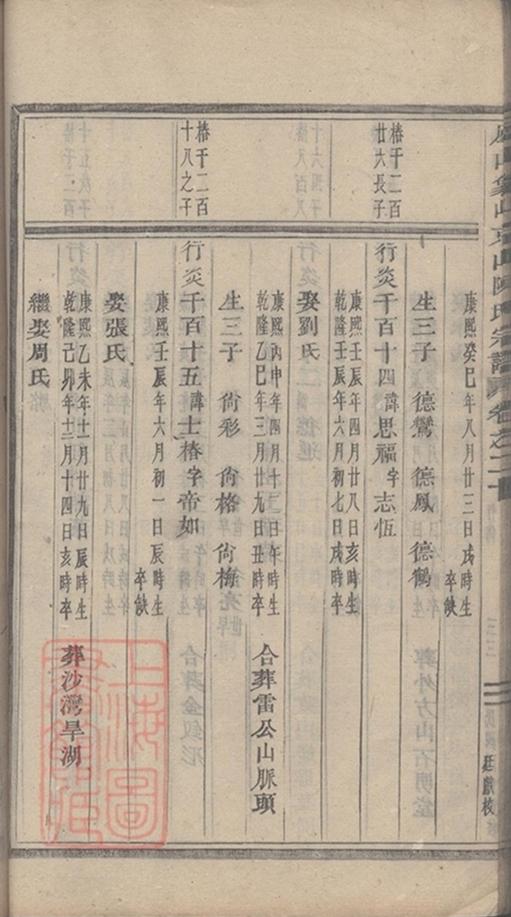 山東山陳氏宗譜 卷之二十
廷獻校
康熙癸巳年八月廿三日戌時生
卒缺
生三子 德鸞 德鳳 德鶴
椿千二百
廿六長子
行炎千百十四諱思福字志恆
康熙壬辰年四月廿八日亥時生
乾隆壬辰年六月初七日戌時卒
娶劉氏
康熙丙申年四月十二日午時生
乾隆乙巳年三月廿九日丑時卒
合葬雷公山脈頭
生三子 尙彩 尙格 尙梅
椿千二百
十八之子
行炎千百十五諱士椿字帝如
康熙壬辰年六月初一日辰時生
卒缺
娶張氏
康熙乙未年十一月廿九日辰時生
乾隆己卯年十二月十四日亥時卒
葬沙灣旱湖
繼娶周氏
上海圖書館藏